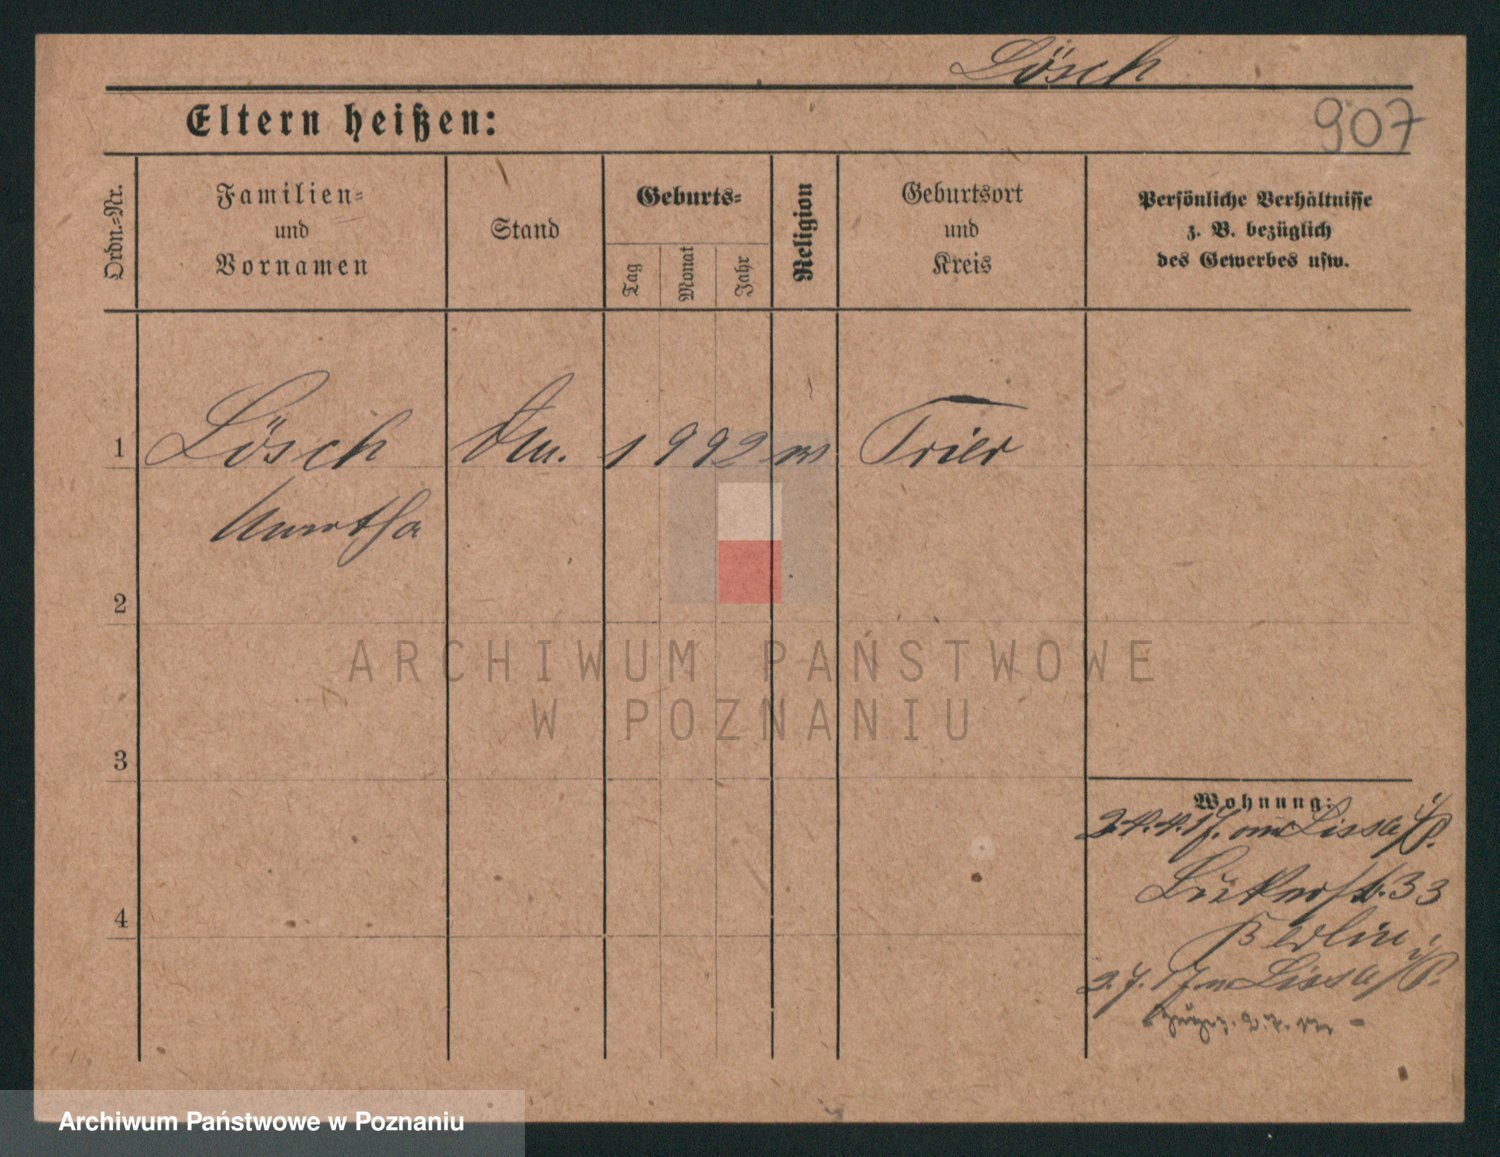 Lösch
Eltern heißen:
907
Ordn.-Nr.
Familien-
und
Vornamen
Stand
Geburts-
Tag
Monat
Jahr
Religion
Geburtsort
und
Kreis
Persönliche Verhältnisse
z. B. bezüglich
des Gewerbes usw.
1
Lösch
1 9 92
Trier
2
3
4
ARCHIWUM PAŃSTWOWE
W POZNANIU
Wohnung:
24.4.17. Lissa i/P.
33
Berlin
2.7.17 n Lissa i/P.
2.7.
Archiwum Państwowe w Poznaniu